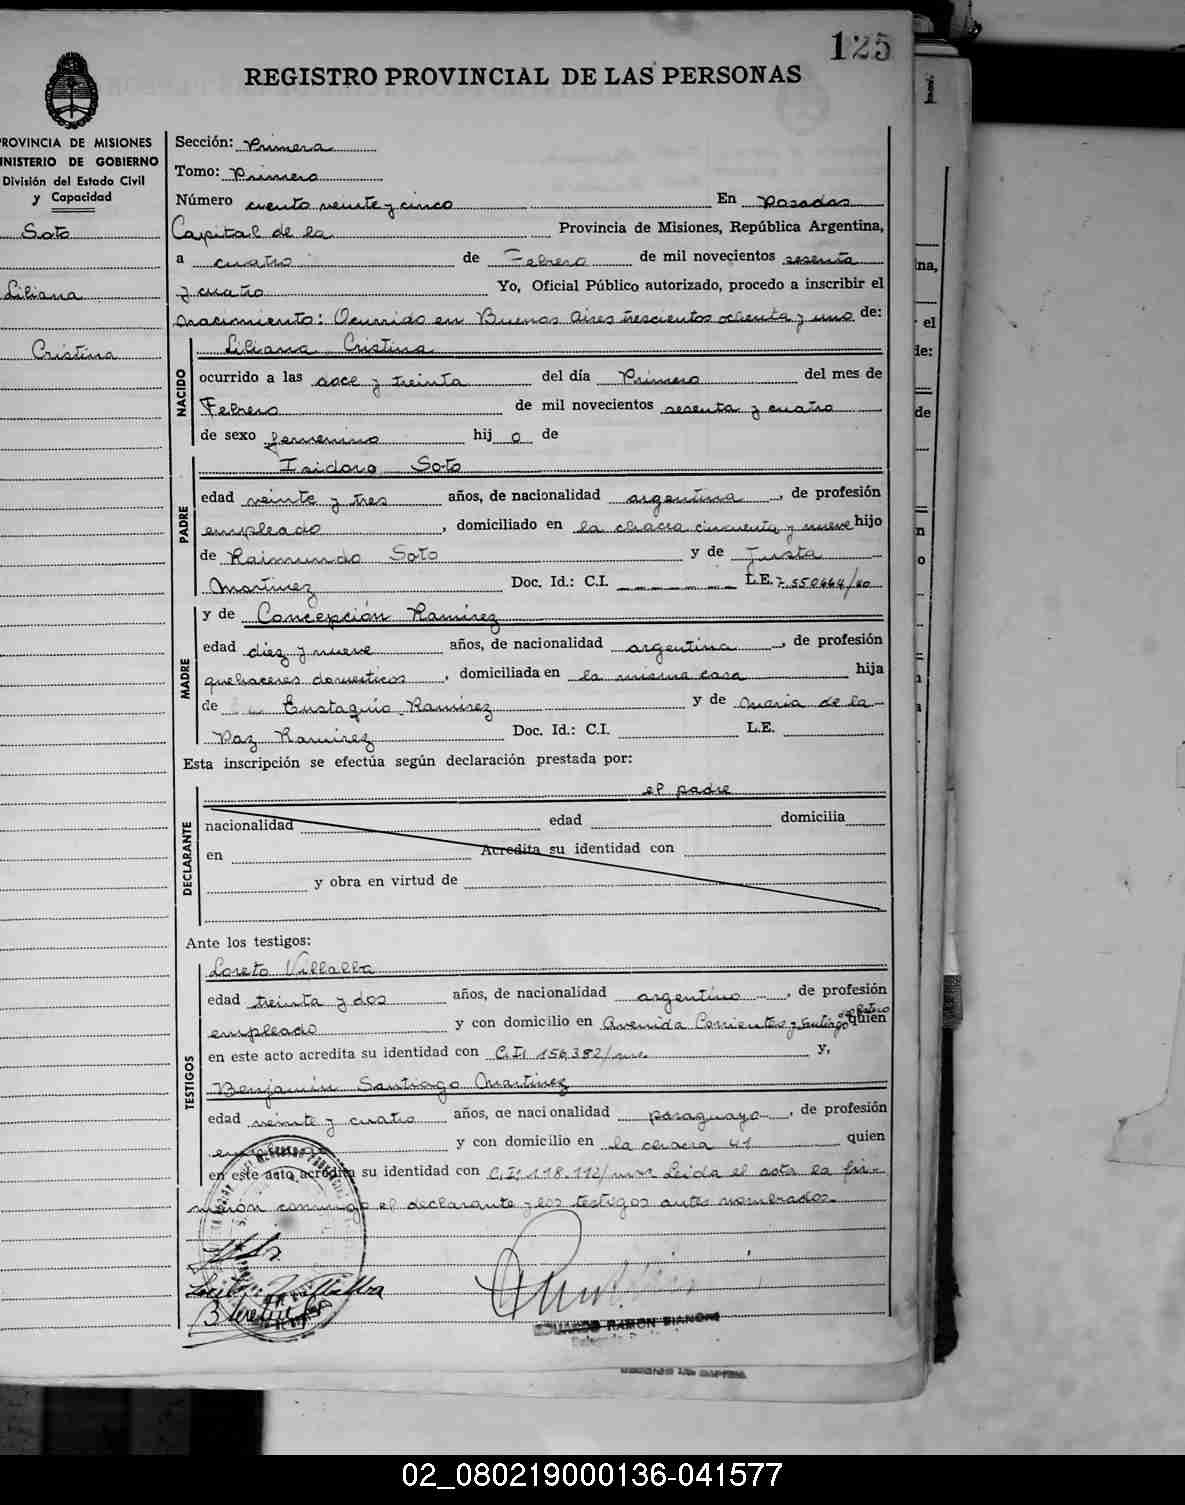 125
REGISTRO PROVINCIAL DE LAS PERSONAS
PROVINCIA DE MISIONES
MINISTERIO DE GOBIERNO
División del Estado Civil
y Capacidad
Soto
Liliana
Cristina
Sección: Primera
Tomo: Primero
Número ciento veinte y cinco En Posadas
Capital de la Provincia de Misiones, República Argentina,
a cuatro de Febrero de mil novecientos sesenta
y cuatro Yo, Oficial Público autorizado, procedo a inscribir el
nacimiento: Ocurrido en Buenos Aires trescientos ochenta y uno de:
NACIDO
Liliana Cristina
ocurrido a las doce y treinta del día Primero del mes de
Febrero de mil novecientos sesenta y cuatro
de sexo femenino hij o de
PADRE
Isidoro Soto
edad veinte y tres años, de nacionalidad argentina, de profesión
empleado, domiciliado en la chacra cincuenta y nueve hijo
de Raimundo Soto y de Justa
Martinez Doc. Id.: C.I. L.E. 7.550464/40
MADRE
y de Concepción Ramirez
edad diez y nueve años, de nacionalidad argentina, de profesión
quehaceres domesticos, domiciliada en la misma casa hija
de Eustaquio Ramirez y de Maria de la
Paz Ramirez Doc. Id.: C.I. L.E.
Esta inscripción se efectúa según declaración prestada por:
DECLARANTE
el padre
nacionalidad edad domicilia
en Acredita su identidad con
y obra en virtud de
Ante los testigos:
TESTIGOS
Loreto Villalba
edad treinta y dos años, de nacionalidad argentino, de profesión
empleado y con domicilio en Avenida Corrientes y Santiago quien
en este acto acredita su identidad con C.I. 156382/ y,
Benjamin Santiago Martinez
edad veinte y cuatro años, de nacionalidad paraguaya, de profesión
empleado y con domicilio en la chacra 41 quien
en este acto acredita su identidad con C.I. 118.112/ Leida el acta la fir-
maron conmigo el declarante y los testigos antes nombrados.
EDUARDO RAMON BIANCHI
02_080219000136-041577